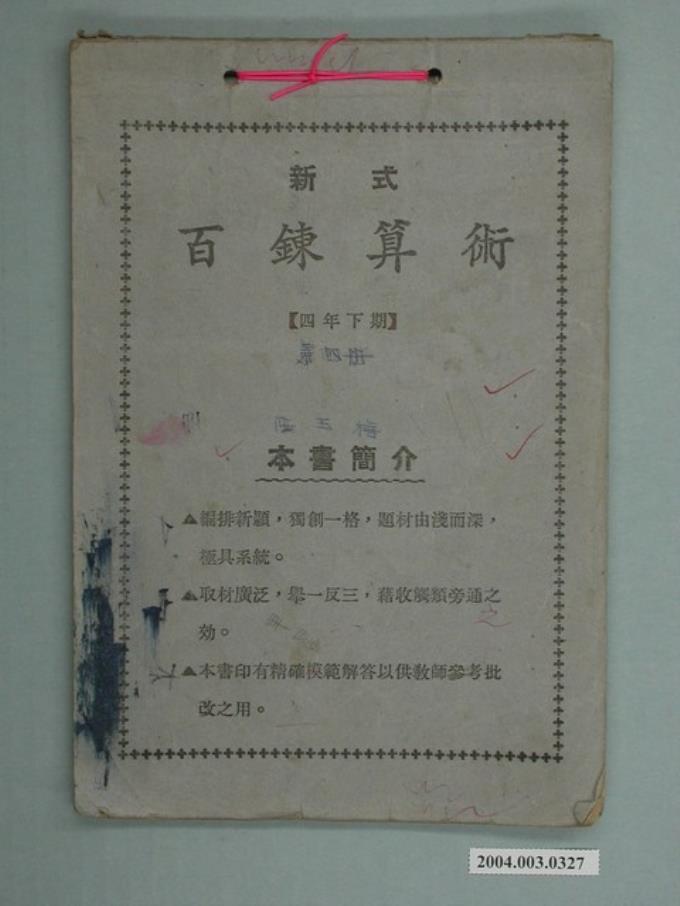 新式
百鍊算術
【四年下期】
第四冊
本書簡介
▲編排新穎，獨創一格，題材由淺而深，
極具系統。
▲取材廣泛，舉一反三，藉收觸類旁通之
効。
▲本書印有精確模範解答以供教師參考批
改之用。
2004.003.0327